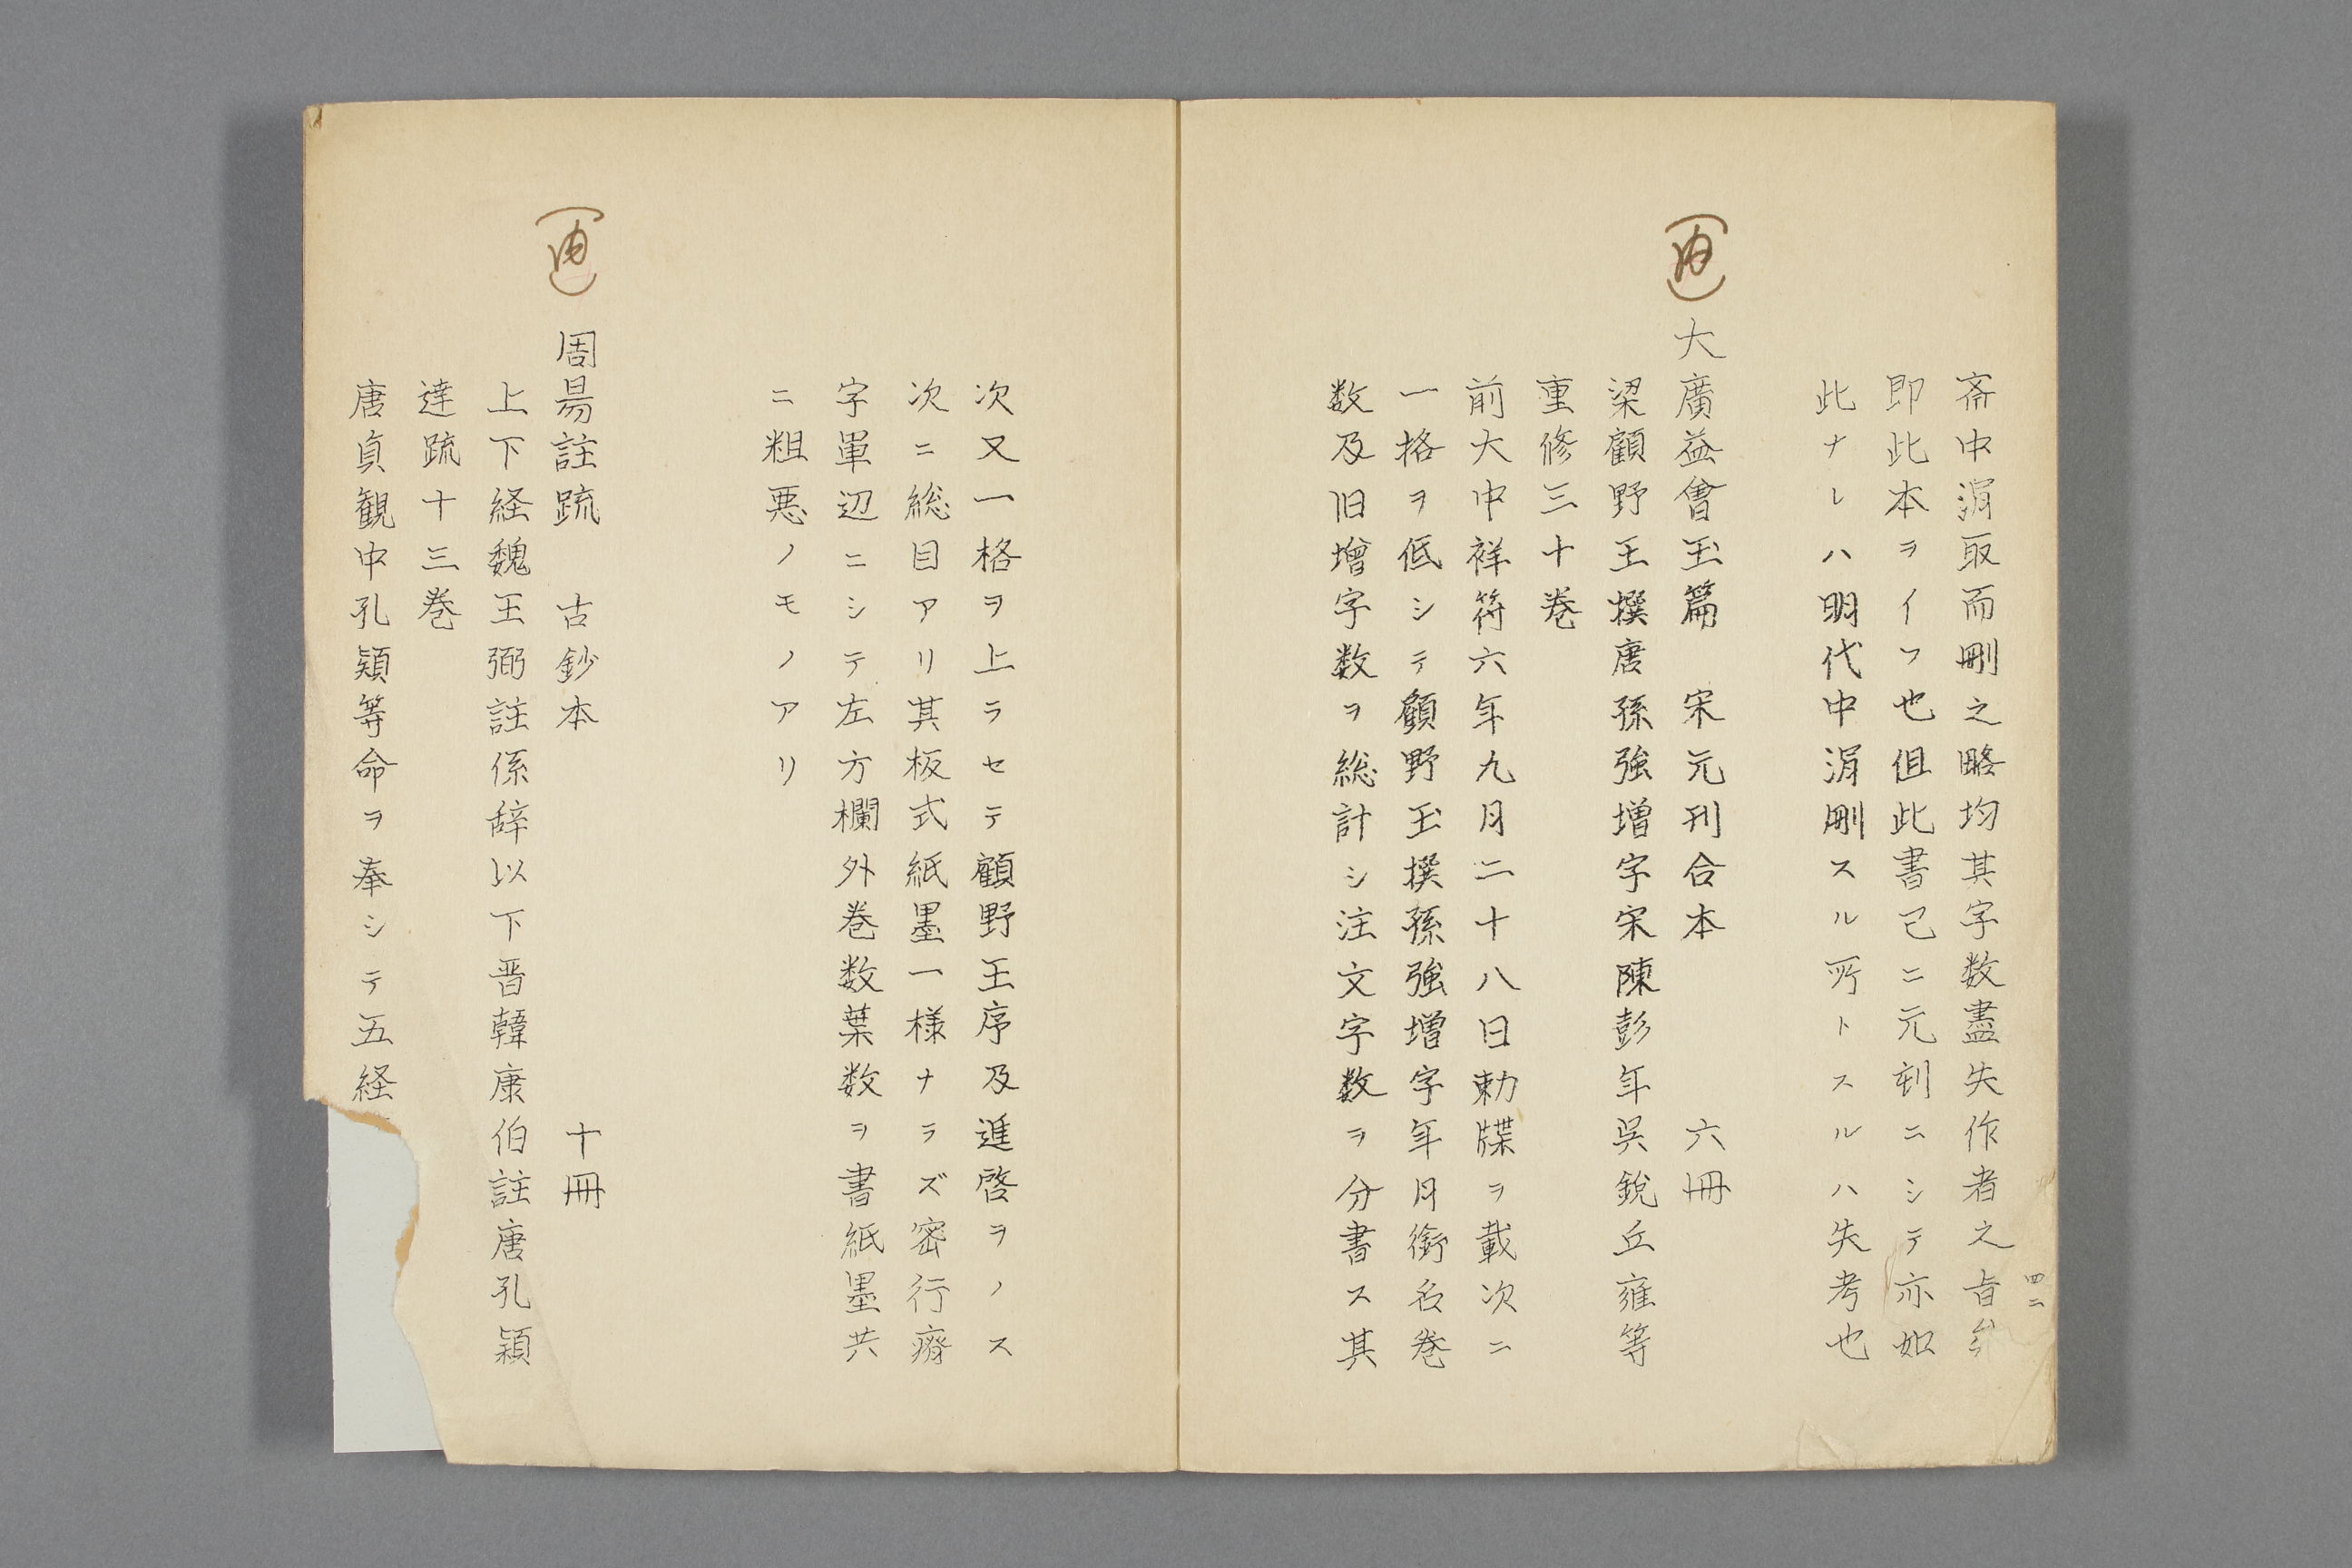 斎中涓取而刪之略均其字数盡失作者之旨矣
即此本ヲイフ也但此書已ニ元刻ニシテ亦如
此ナレハ明代中涓刪スル所トスルハ失考也
大廣益會玉篇　宋元刊合本　六冊
梁顧野王撰唐孫強増字宋陳彭年呉鋭丘雍等
重修三十巻
前大中祥符六年九月二十八日勅牒ヲ載次ニ
一格ヲ低シテ顧野王撰孫強増字年月銜名巻
数及旧増字数ヲ総計シ注文字数ヲ分書ス其
次又一格ヲ上ラセテ顧野王序及進啓ヲノス
次ニ総目アリ其板式紙墨一様ナラズ密行瘠
字単辺ニシテ左方欄外巻数葉数ヲ書紙墨共
ニ粗悪ノモノアリ
周易註疏　古鈔本　十冊
上下経魏王弼註係辞以下晋韓康伯註唐孔穎
達疏十三巻
唐貞観中孔穎等命ヲ奉シテ五経
四二